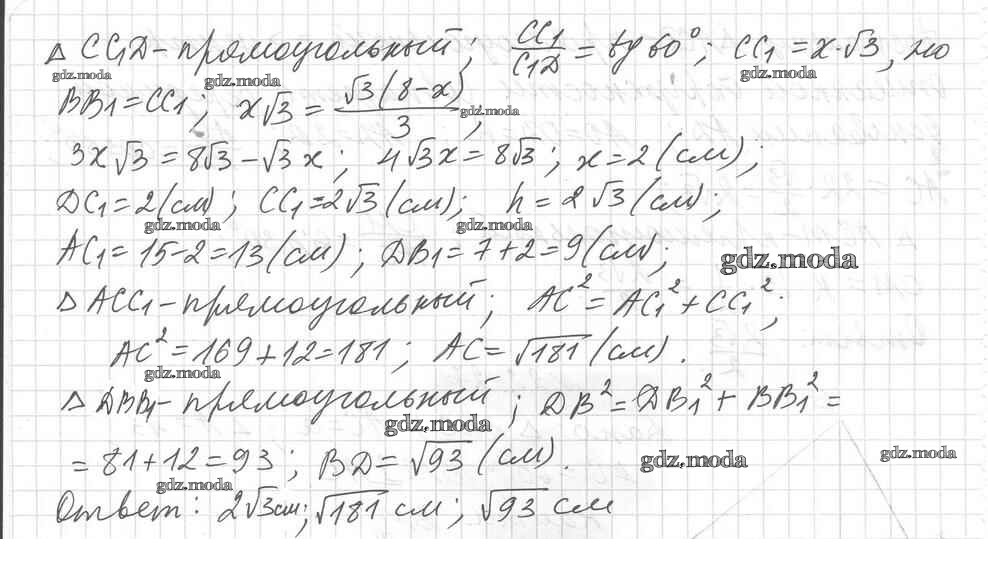 Δ CC₁D - прямоугольный; CC₁/C₁D = tg 60°; CC₁ = x·√3, но
gdz.moda gdz.moda gdz.moda
BB₁ = CC₁; x√3 = √3(8-x)/3;
gdz.moda
3x√3 = 8√3 - √3x; 4√3x = 8√3; x = 2 (см);
DC₁ = 2 (см); CC₁ = 2√3 (см); h = 2√3 (см);
gdz.moda gdz.moda
AC₁ = 15-2 = 13 (см); DB₁ = 7+2 = 9 (см);
gdz.moda
Δ ACC₁ - прямоугольный; AC² = AC₁² + CC₁²;
AC² = 169 + 12 = 181; AC = √181 (см).
gdz.moda
Δ DBB₁ - прямоугольный; DB² = DB₁² + BB₁² =
gdz.moda
= 81 + 12 = 93; BD = √93 (см).
gdz.moda gdz.moda gdz.moda
Ответ: 2√3 см; √181 см; √93 см